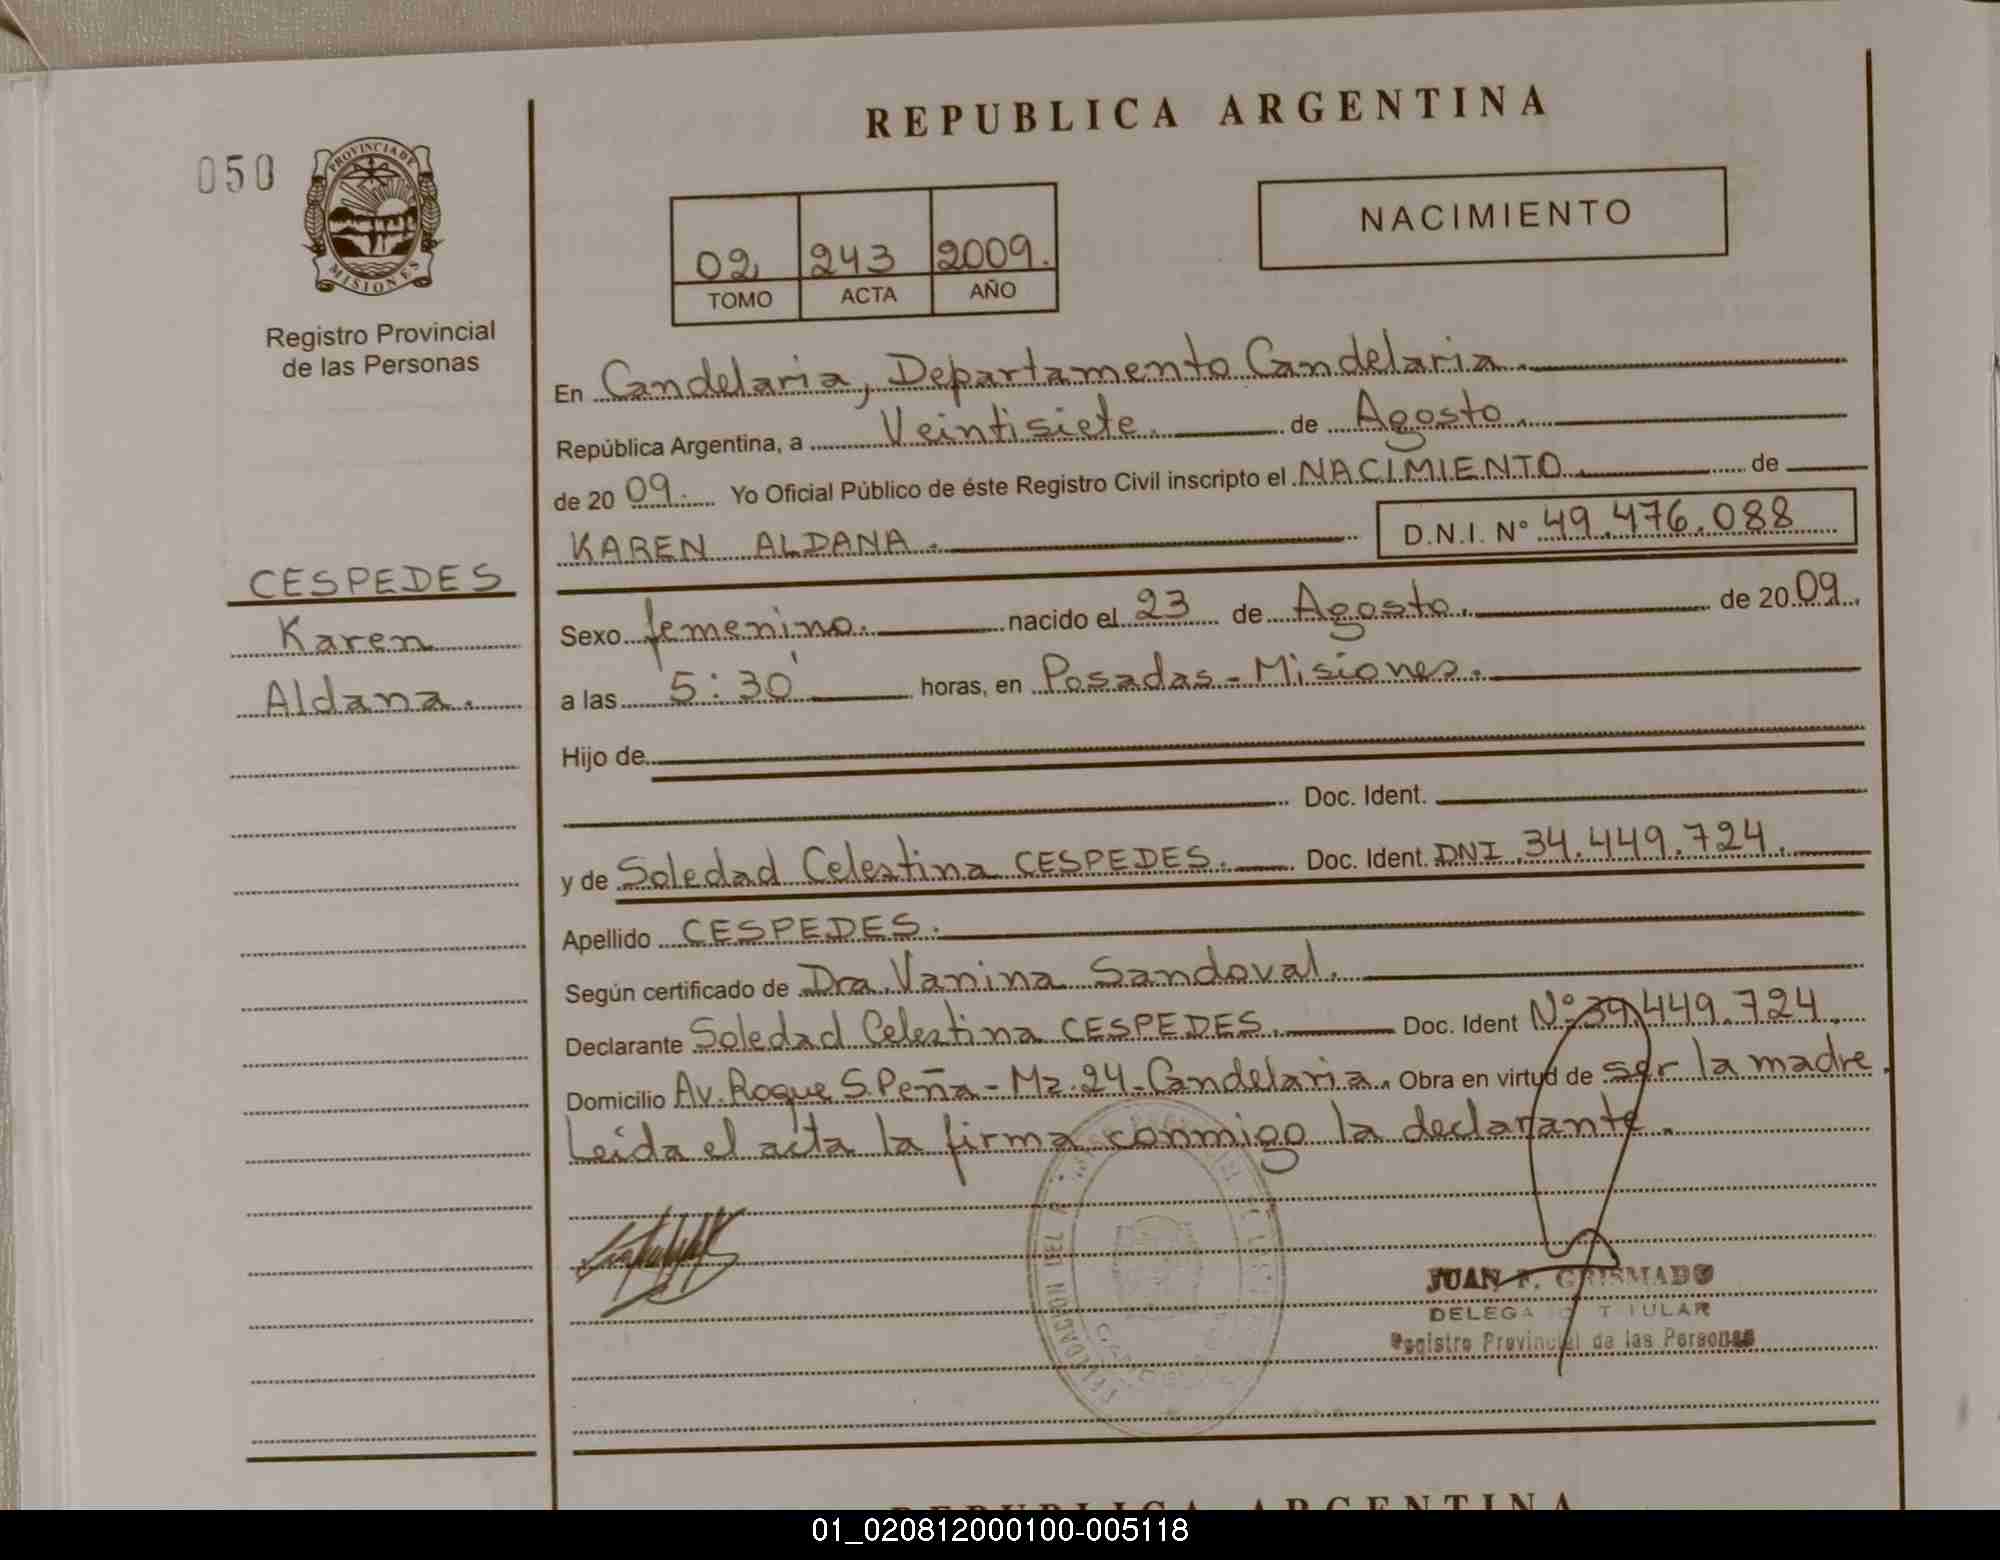 REPUBLICA ARGENTINA
050
PROVINCIA DE
MISIONES
Registro Provincial
de las Personas
02 243 2009.
TOMO ACTA AÑO
NACIMIENTO
En Candelaria, Departamento Candelaria.
República Argentina, a Veintisiete. de Agosto.
de 2009. Yo Oficial Público de éste Registro Civil inscripto el NACIMIENTO. de
KAREN ALDANA. D.N.I. Nº 49.476.088
CESPEDES
Karen
Aldana.
Sexo femenino. nacido el 23 de Agosto. de 2009.
a las 5:30' horas, en Posadas - Misiones.
Hijo de
Doc. Ident.
y de Soledad Celestina CESPEDES. Doc. Ident. DNI 34.449.724.
Apellido CESPEDES.
Según certificado de Dra. Vanina Sandoval.
Declarante Soledad Celestina CESPEDES. Doc. Ident Nº 34.449.724.
Domicilio Av. Roque S. Peña - Mz. 24 - Candelaria. Obra en virtud de ser la madre.
Leída el acta la firma conmigo la declarante.
JUAN F. GRISMADO
DELEGADO TITULAR
Registro Provincial de las Personas
REPUBLICA ARGENTINA
01_020812000100-005118